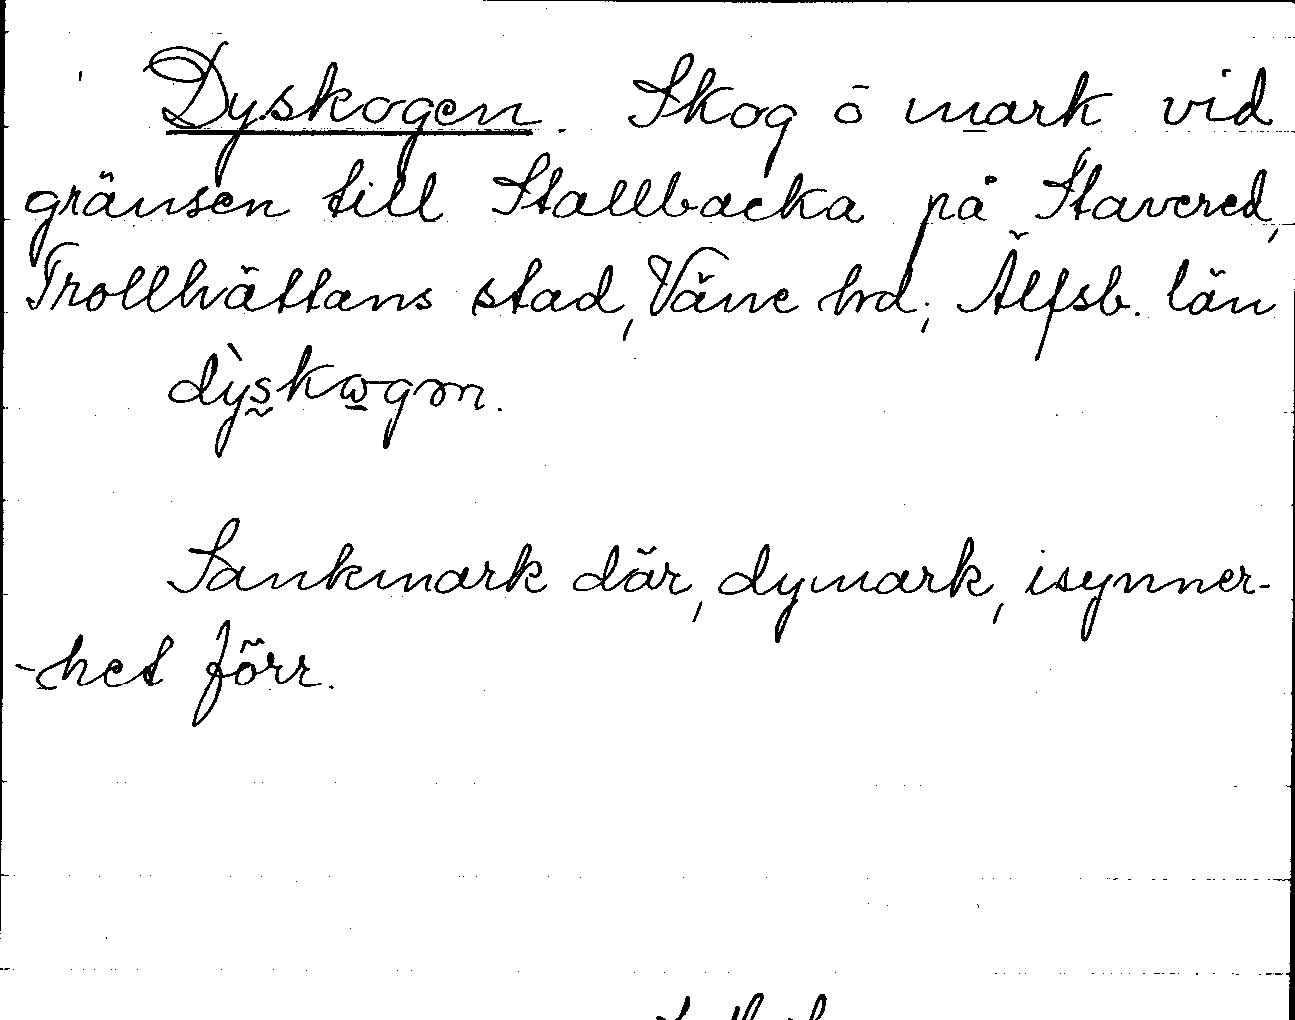 Dyskogen. Skog o mark vid
gränsen till Stallbacka på Stavered,
Trollhättans stad, Väne hd; Älfsb. län
dỳskωgən.
Sankmark där, dymark, isynner-
-het förr.